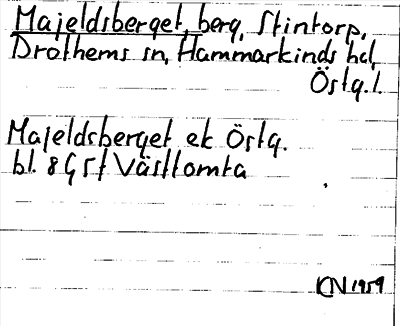 Majeldsberget, berg, Stintorp,
Drothems sn, Hammarkinds hd,
Östg.l.
Majeldsberget ek Östg.
bl. 8 G Sf Västtomta
KN 1959